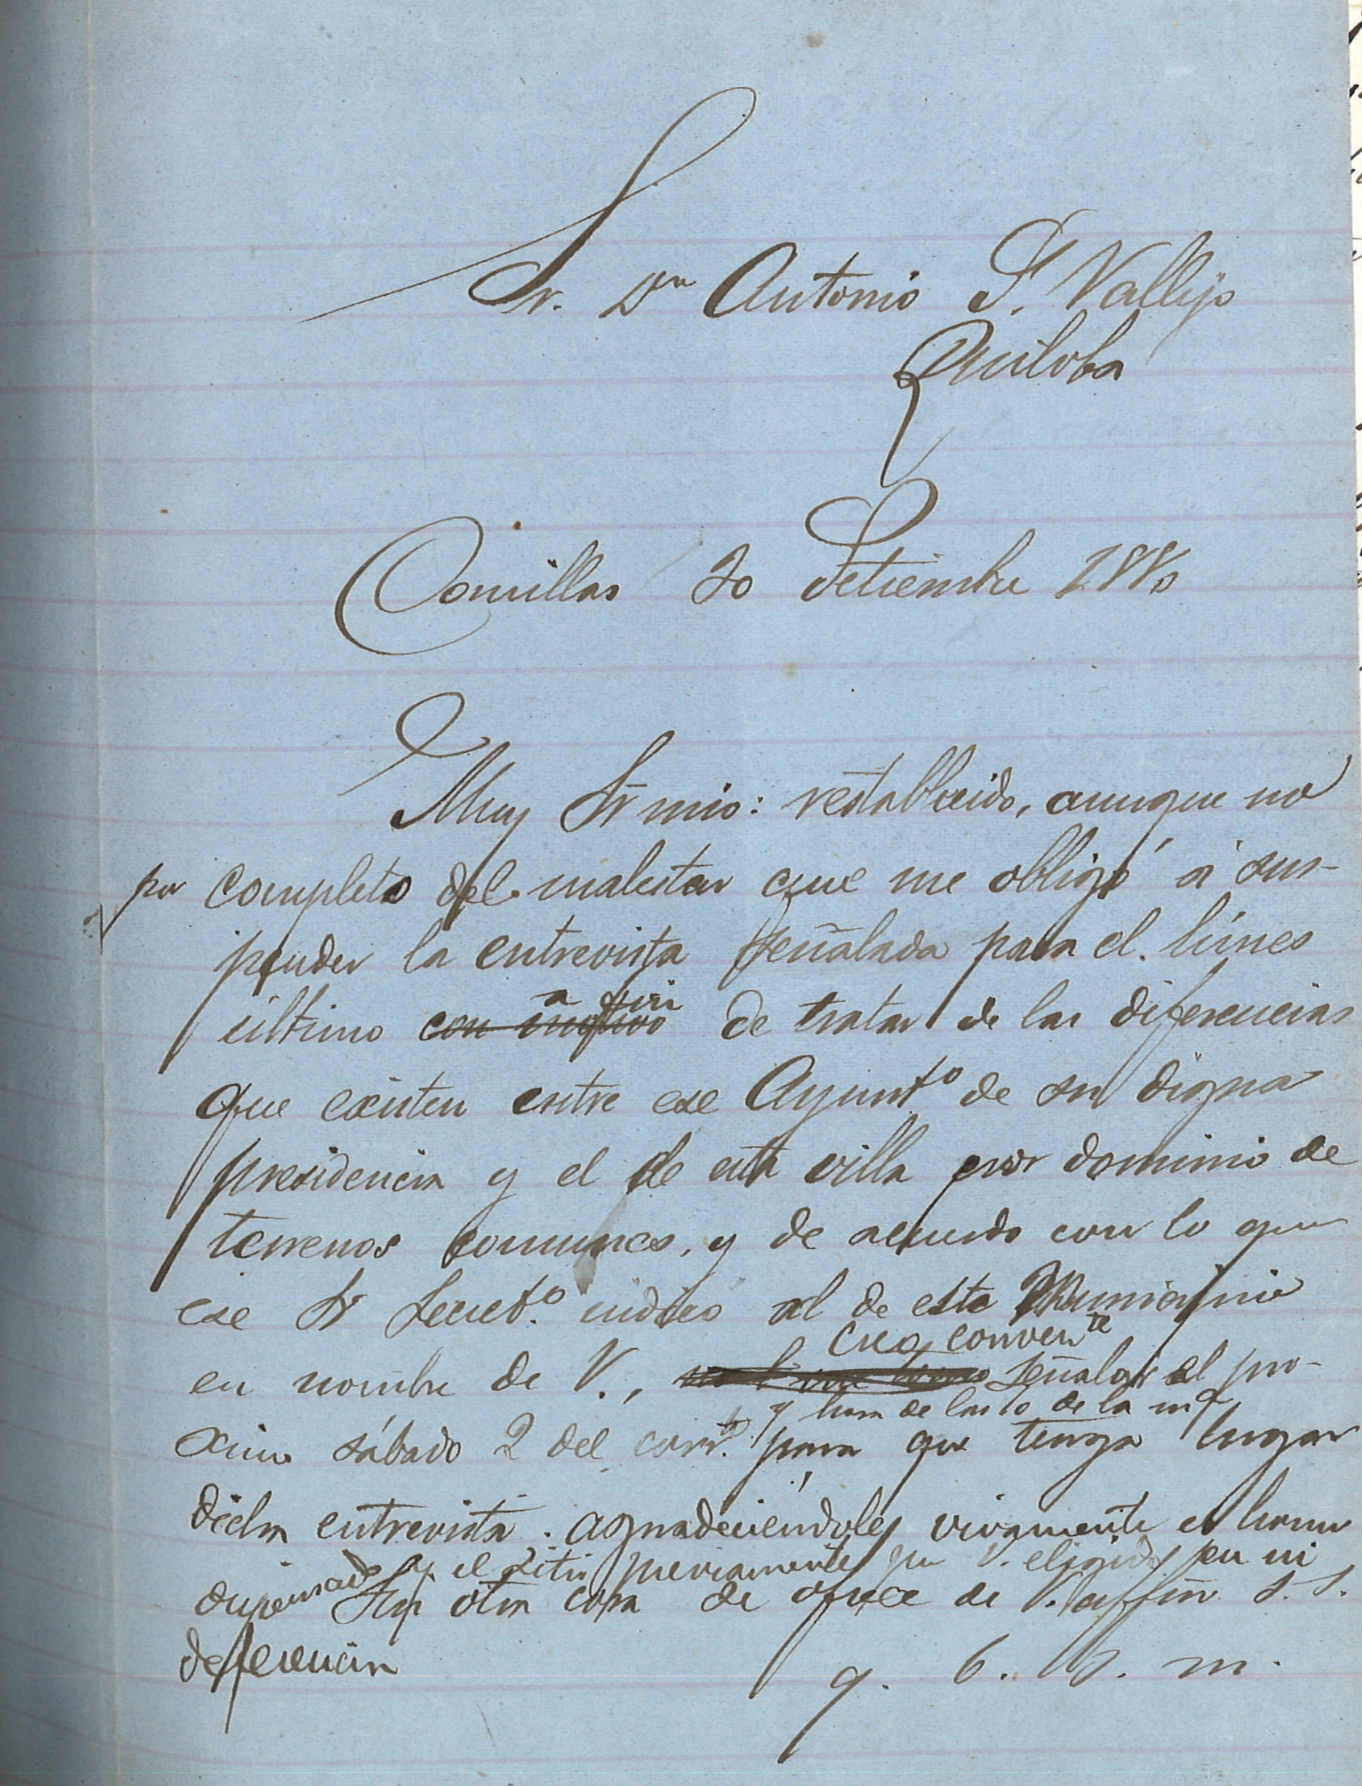 Sr. Dn Antonio S. Vallejo
Ruiloba
Comillas 30 Setiembre 1880
Muy Sr mio: restablecido, aunque no
por completo del malestar que me obligó á sus-
pender la entrevista señalada para el lúnes
a fin
último con motivo de tratar de las diferencias
que existen entre ese Ayuntº de su digna
presidencia y el de esta villa por dominio de
terrenos comunes, y de acuerdo con lo que
ese Sr Secretº. indicó al de este Municipio
creo convente
en nombre de V., señalar el pro-
y hora de las 10 de la mª
ximo sábado 2 del corrte. para que tenga lugar
dicha entrevista. agradeciéndoles vivamente el honor
dispensado y el sitio previamente por V. elegido en mi
Sin otra cosa se ofrece de V. affmo S. S.
deferencia
q. b. s. m.